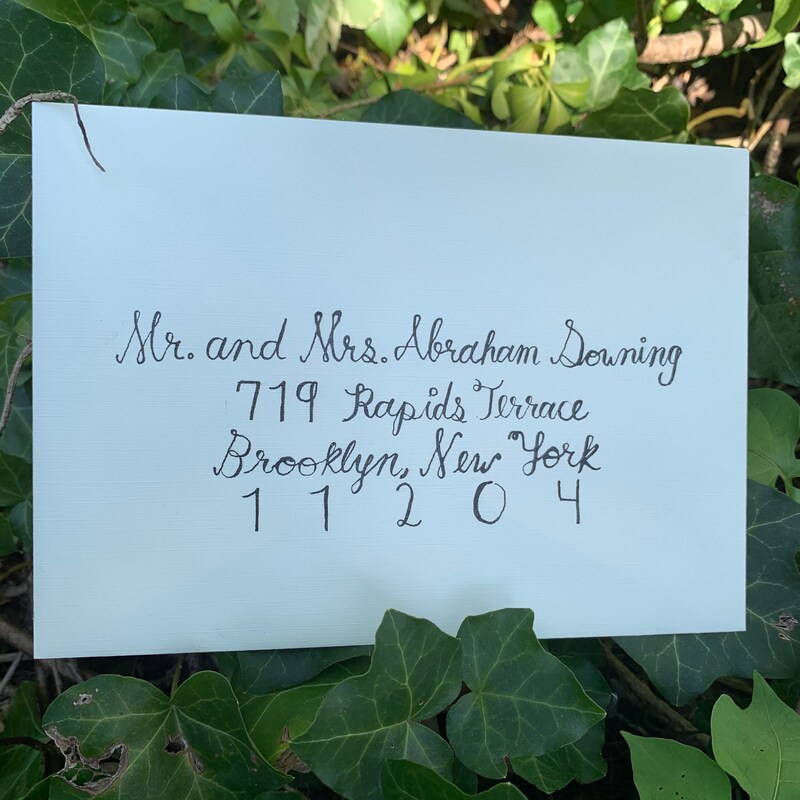 Mr. and Mrs. Abraham Downing
719 Rapids Terrace
Brooklyn, New York
11204